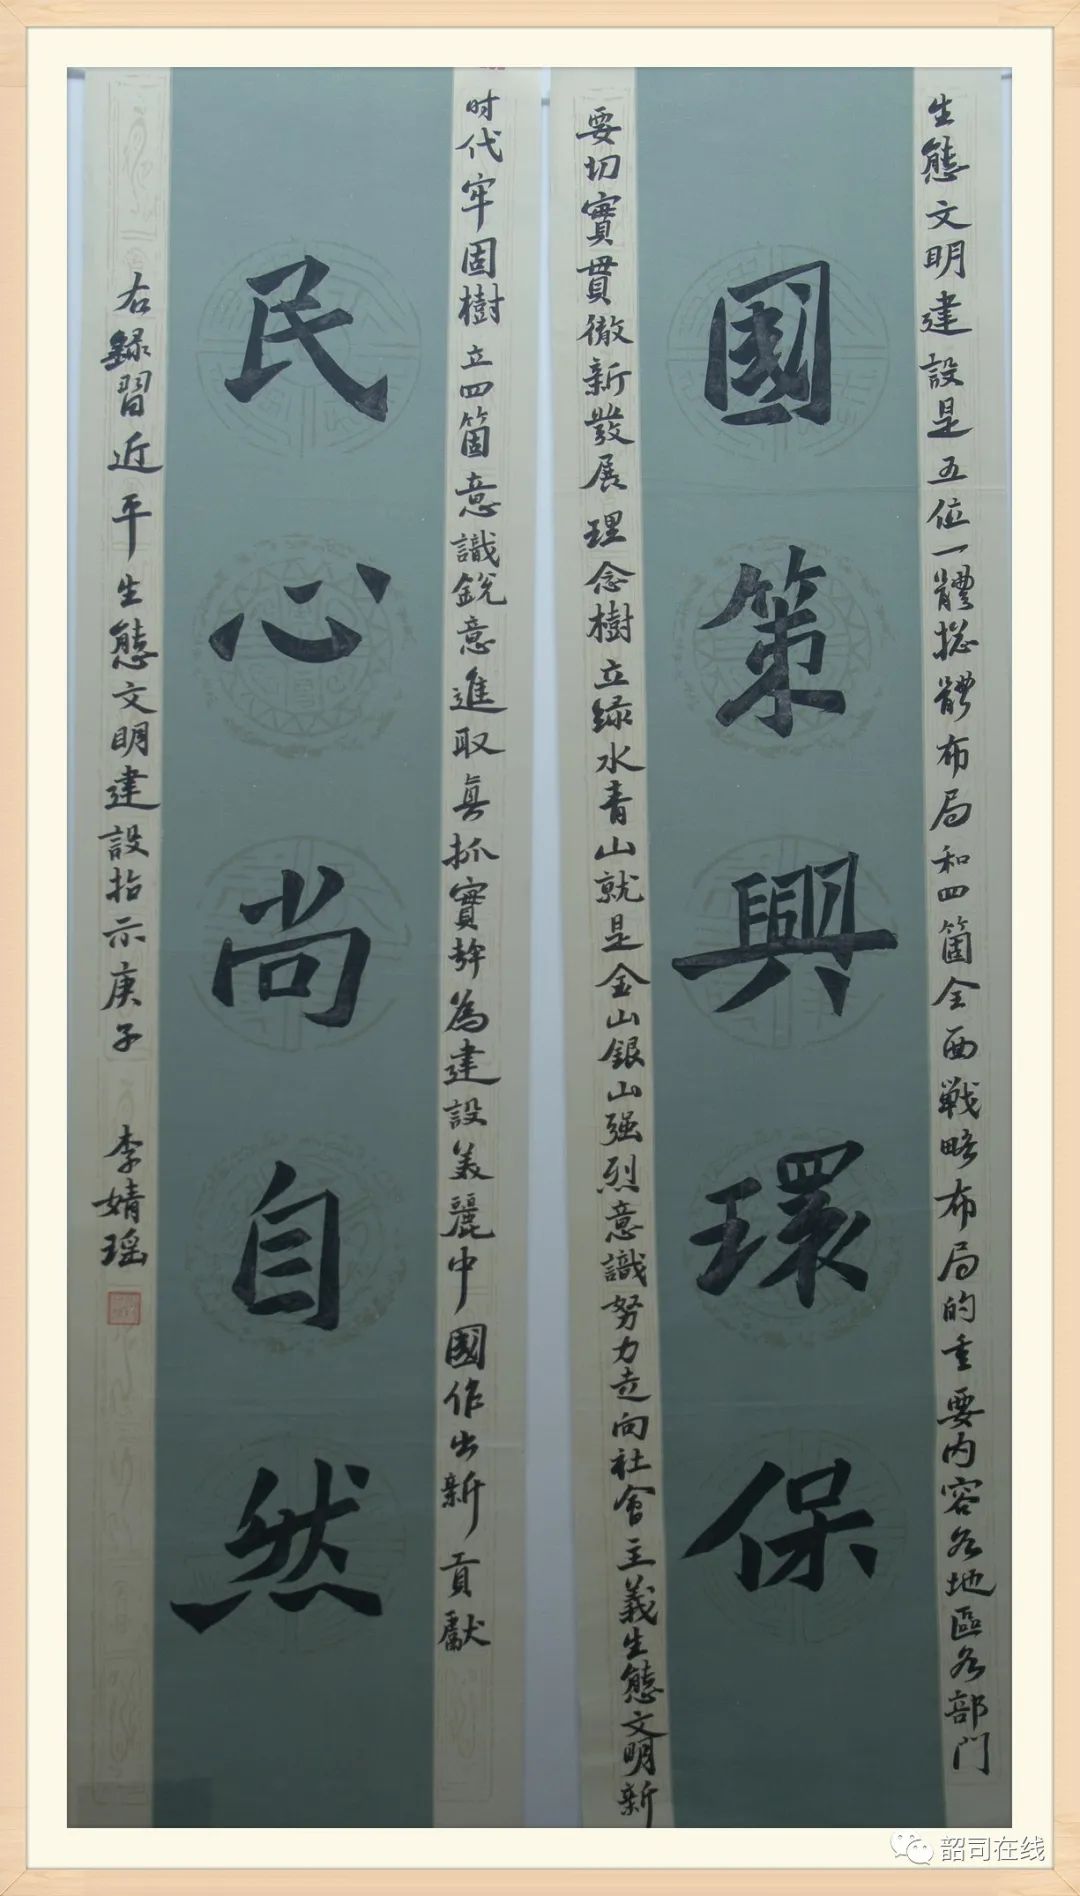 生態文明建設是五位一體捴體布局和四箇全面戰略布局的重要内容各地區各部門
國策興環保
要切實貫徹新發展理念樹立緑水青山就是金山銀山强烈意識努力走向社會主義生態文明新
时代牢固樹立四箇意識銳意進取真抓實幹為建設美麗中國作出新貢獻
民心尚自然
右録習近平生態文明建設指示庚子 李婧瑶
韶司在线